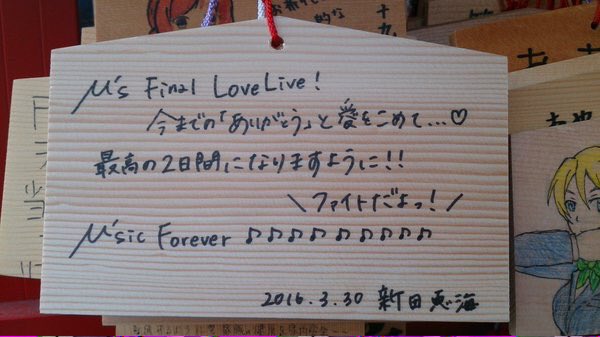 μ's Final LoveLive!
今までの「ありがとう」と愛をこめて...♡
最高の2日間になりますように!!
\ファイトだよっ!/
μ'sic Forever ♪♪♪♪♪♪♪♪♪
2016.3.30 新田恵海